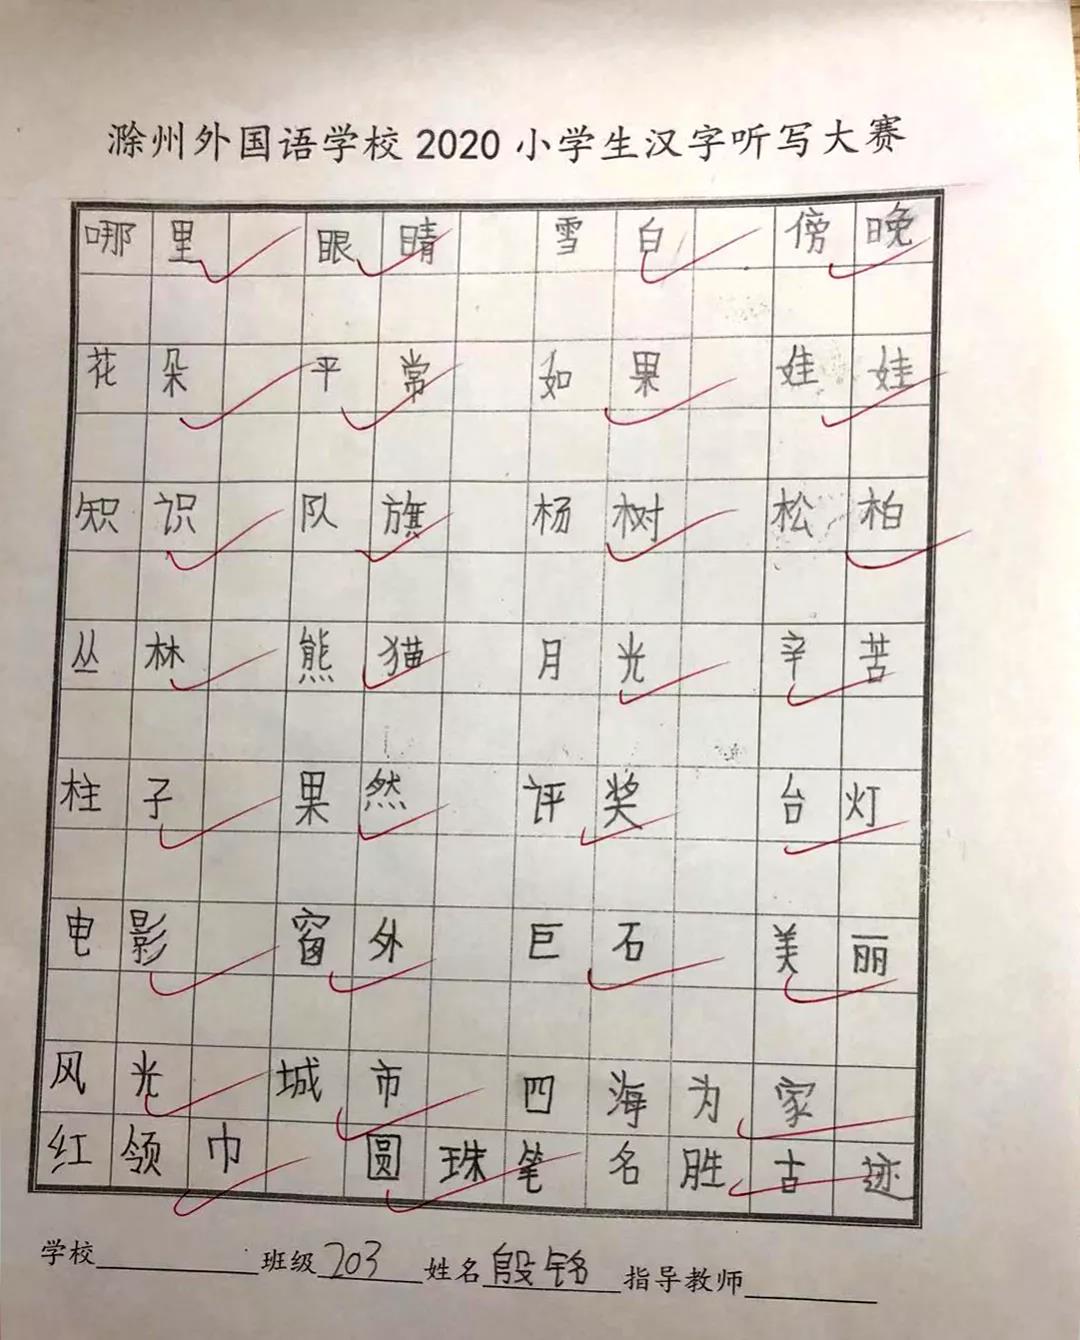 滁州外国语学校2020小学生汉字听写大赛
哪里 眼睛 雪白 傍晚
花朵 平常 如果 娃娃
知识 队旗 杨树 松柏
丛林 熊猫 月光 辛苦
柱子 果然 评奖 台灯
电影 窗外 巨石 美丽
风光 城市 四海为家
红领巾 圆珠笔 名胜古迹
学校 班级 203 姓名 殷铭 指导教师